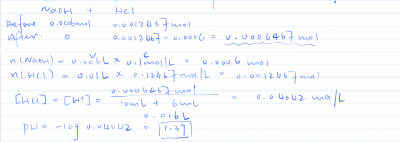 NaOH + HCl
Before 0.0006mol 0.0012467mol
After. 0 0.0012467-0.0006 = 0.0006467mol
V C
n(NaOH) = 0.006L × 0.1mol/L = 0.0006 mol
n(HCl) = 0.01L × 0.12467mol/L = 0.0012467mol
[HCl] = [H⁺] = 0.0006467mol / 10mL + 6mL = 0.04042 mol/L
0.016L
pH = -log 0.04042 = 1.39